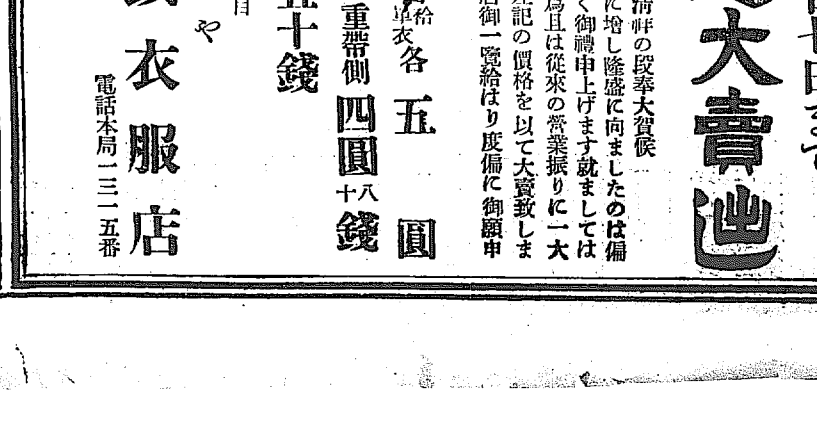 日まで
大賣出
清祥の段奉大賀候
に増し隆盛に向ましたのは偏
く御禮申上げます就ましては
爲且は從來の營業振りに一大
記の價格を以て大賣致しま
店御一覽給はり度偏に御願申
袷
單衣
各五圓
重帶側四圓
八十
錢
五十錢
目
や
衣服店
電話本局一三一五番